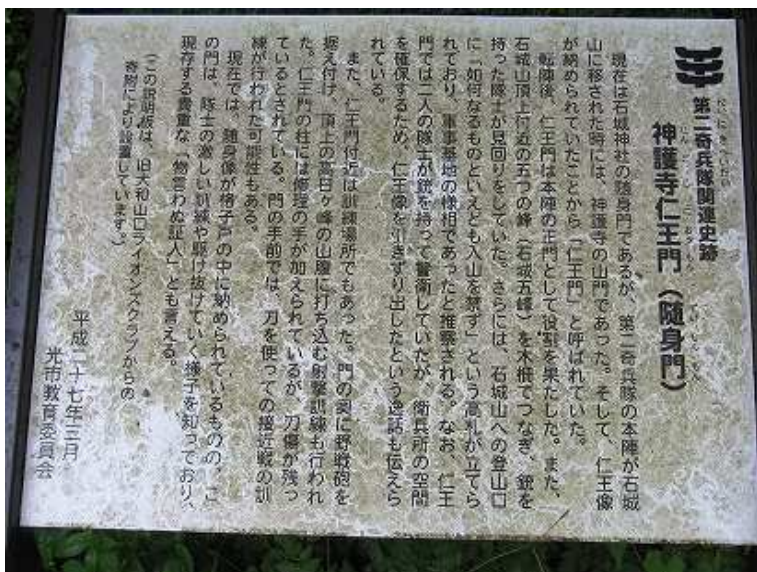 第二奇兵隊関連史跡
だいにきへいたい
神護寺仁王門（随身門）
じんごじ におうもん ずいしんもん
現在は石城神社の随身門であるが、第二奇兵隊の本陣が石城
山に移された時には、神護寺の山門であった。そして、仁王像
が納められていたことから「仁王門」と呼ばれていた。
転陣後、仁王門は本陣の正門として役割を果たした。また、
石城山頂上付近の五つの峰（石城五峰）を木柵でつなぎ、銃を
持った隊士が見回りをしていた。さらには、石城山への登山口
に「如何なるものといえども入山を禁ず」という高札が立てら
れており、軍事基地の様相であったと推察される。なお、仁王
門では二人の隊士が銃を持って警衛していたが、衛兵所の空間
を確保するため、仁王像を引きずり出したという逸話も伝えら
れている。
また、仁王門付近は訓練場所でもあった。門の奥に野戦砲を
据え付け、頂上の高日ヶ峰の山腹に打ち込む射撃訓練も行われ
た。仁王門の柱には修理の手が加えられているが、刀傷が残っ
ているとされている。門の手前では、刀を使っての接近戦の訓
練が行われた可能性もある。
現在では、随身像が格子戸の中に納められているものの、こ
の門は、隊士の激しい訓練や駆け抜けていく様子を知っており、
現存する貴重な「物言わぬ証人」とも言える。
（この説明板は、旧大和山口ライオンズクラブからの
寄附により設置しています。）
平成二十七年三月
光市教育委員会